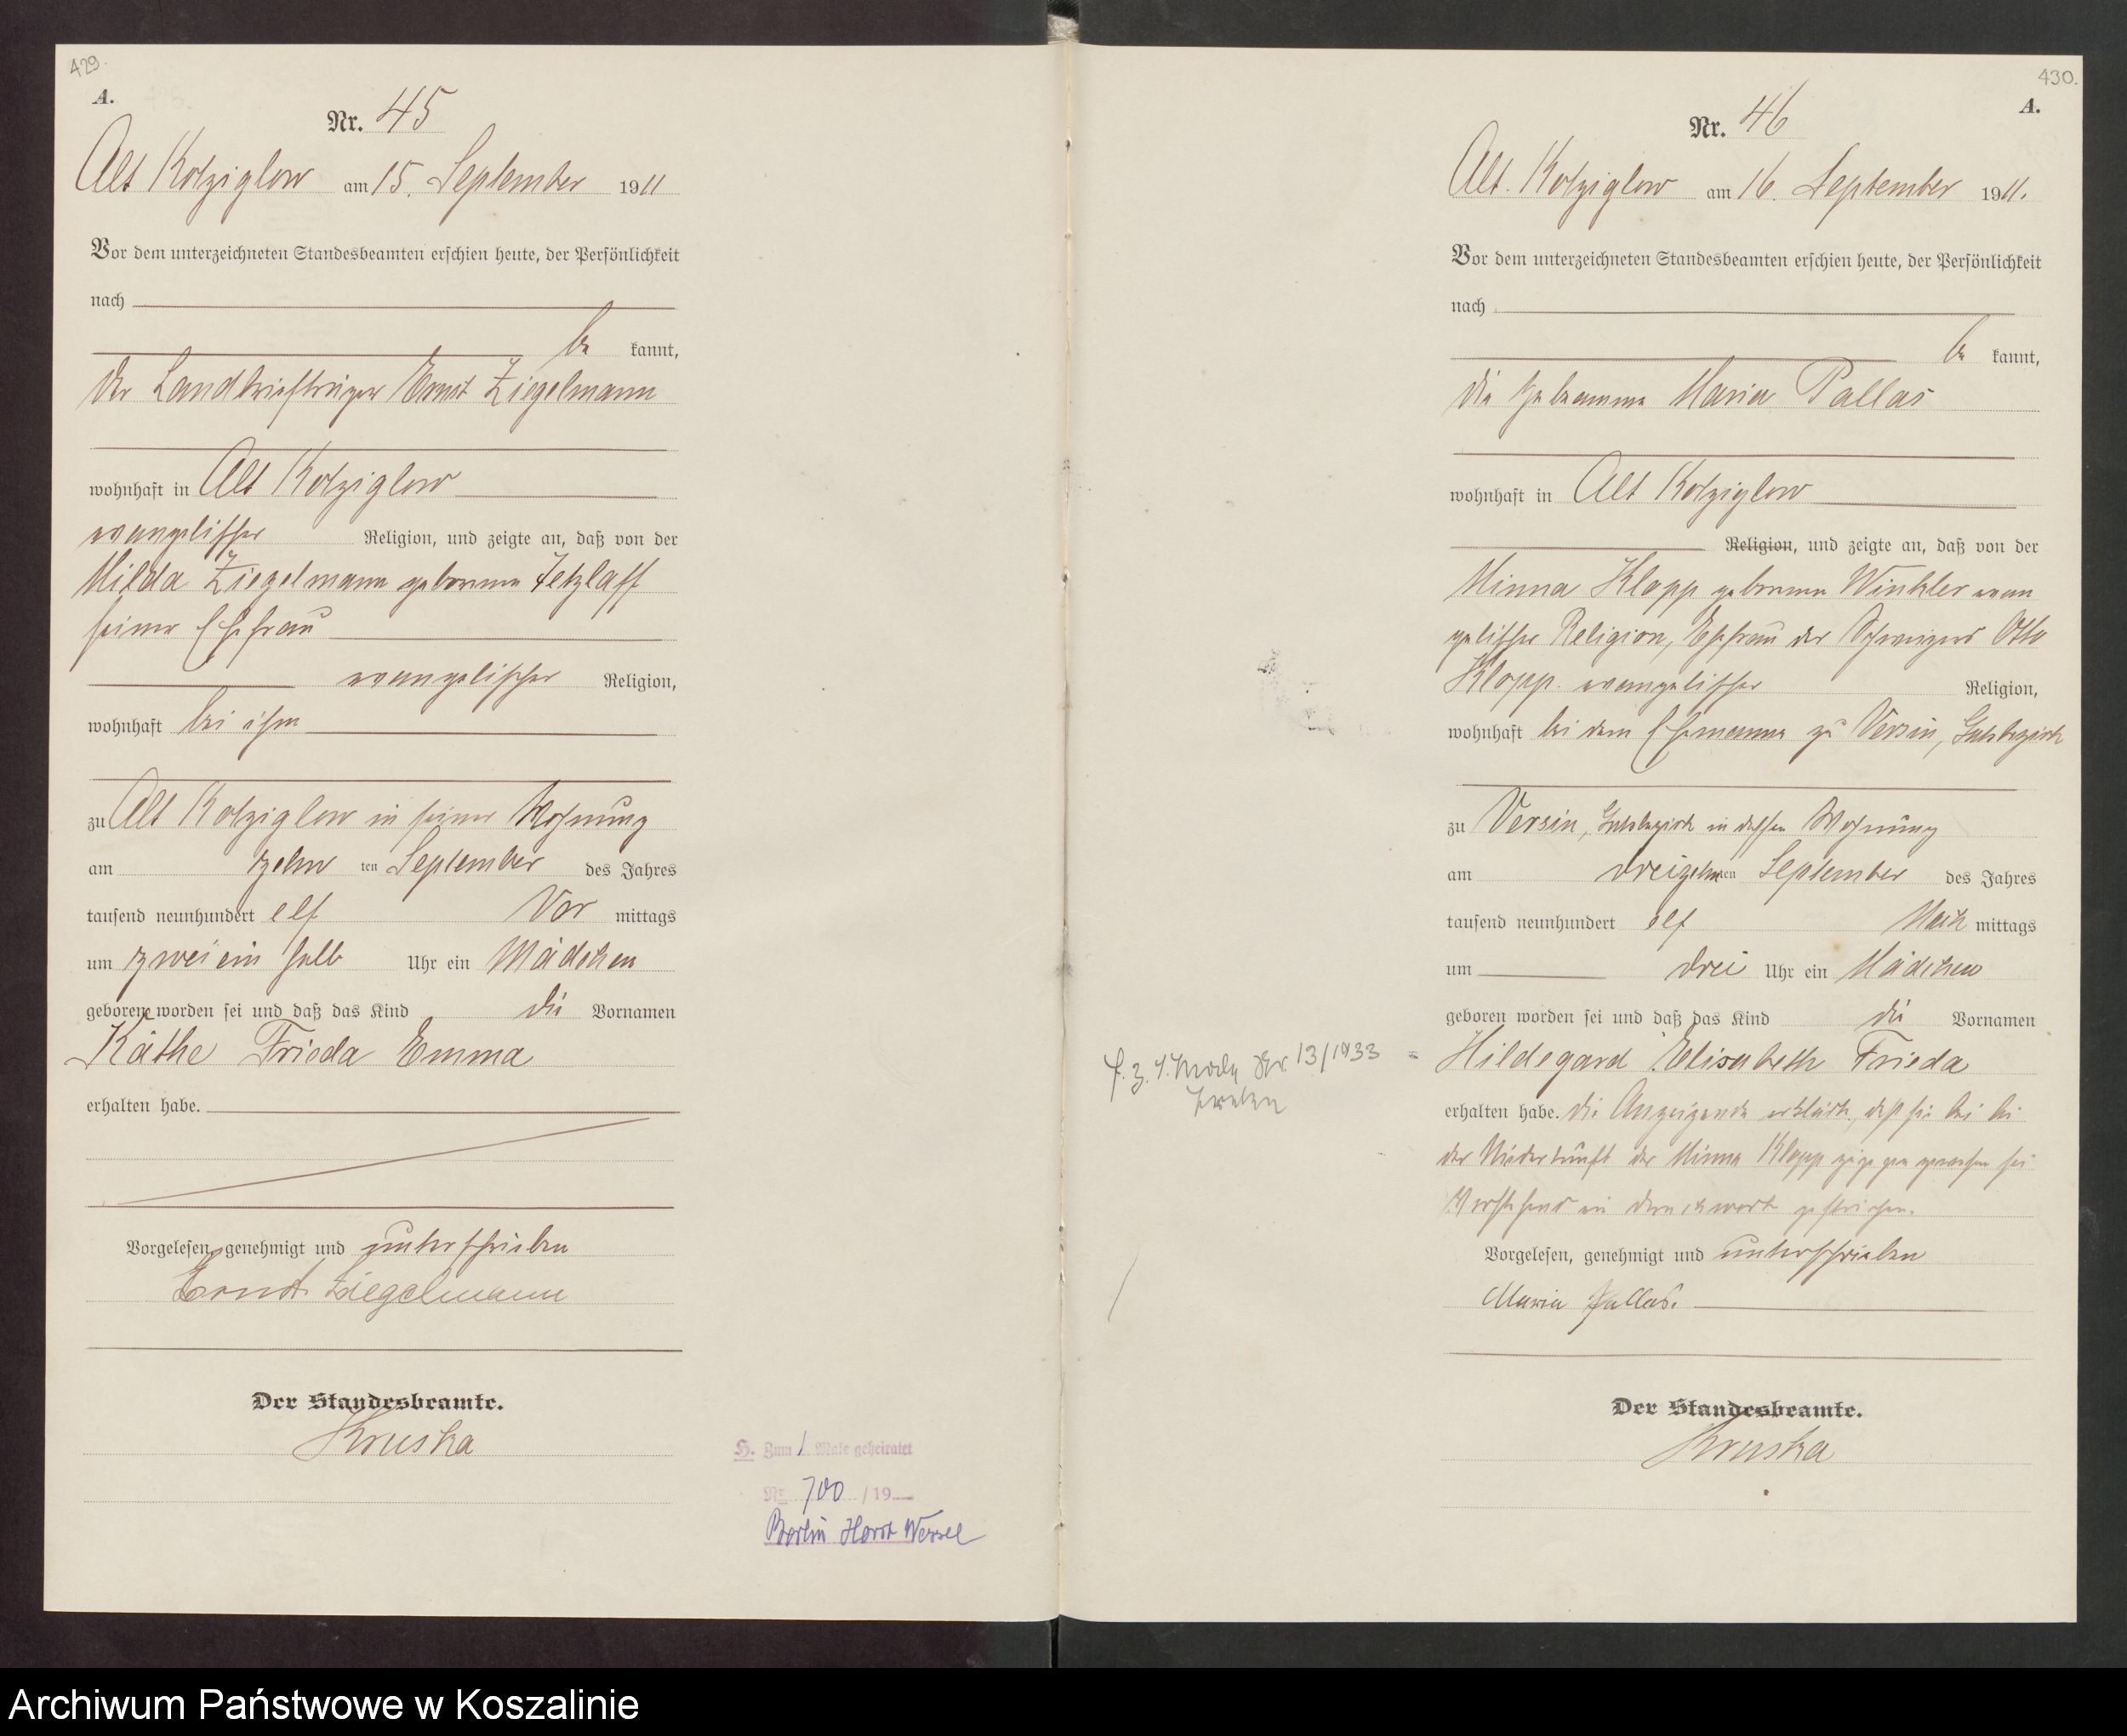 429.
A.
Nr. 45
Alt Kolziglow am 15. September 1911
Vor dem unterzeichneten Standesbeamten erschien heute, der Persönlichkeit
nach
be kannt,
der Landbriefträger Ernst Ziegelmann
wohnhaft in Alt Kolziglow
evangelischer Religion, und zeigte an, daß von der
Milda Ziegelmann geborenen Tetzlaff
seiner Ehefrau
evangelischer Religion,
wohnhaft bei ihm
zu Alt Kolziglow in seiner Wohnung
am zehn ten September des Jahres
tausend neunhundert elf Vor mittags
um zweiein halb Uhr ein Mädchen
geboren worden sei und daß das Kind die Vornamen
Käthe Frieda Emma
erhalten habe.
Vorgelesen, genehmigt und unterschrieben
Ernst Ziegelmann
Der Standesbeamte.
Kruska
H. Zum 1 Male geheiratet
Nr. 700 /19
Berlin Horst Wessel
430.
A.
Nr. 46
Alt. Kolziglow am 16. September 1911.
Vor dem unterzeichneten Standesbeamten erschien heute, der Persönlichkeit
nach
be kannt,
die Hebamme Maria Pallas
wohnhaft in Alt Kolziglow
Religion, und zeigte an, daß von der
Minna Klopp geborenen Winkler evan
gelischer Religion, Ehefrau des Schweizers Otto
Klopp. evangelischer Religion,
wohnhaft bei dem Ehemanne zu Versin, Gutsbezirk
zu Versin, Gutsbezirk in dessen Wohnung
am dreizehnten September des Jahres
tausend neunhundert elf Nach mittags
um drei Uhr ein Mädchen
geboren worden sei und daß das Kind die Vornamen
Hildegard Elisabeth Frieda
Nr. 13/1933
erhalten habe. Die Anzeigende erklärte, daß sie bei bei
der Niederkunft der Minna Klopp zugegen gewesen sei
Vorstehend ein Druckwort gestrichen.
Vorgelesen, genehmigt und unterschrieben
Maria Pallas.
Der Standesbeamte.
Kruska
Archiwum Państwowe w Koszalinie